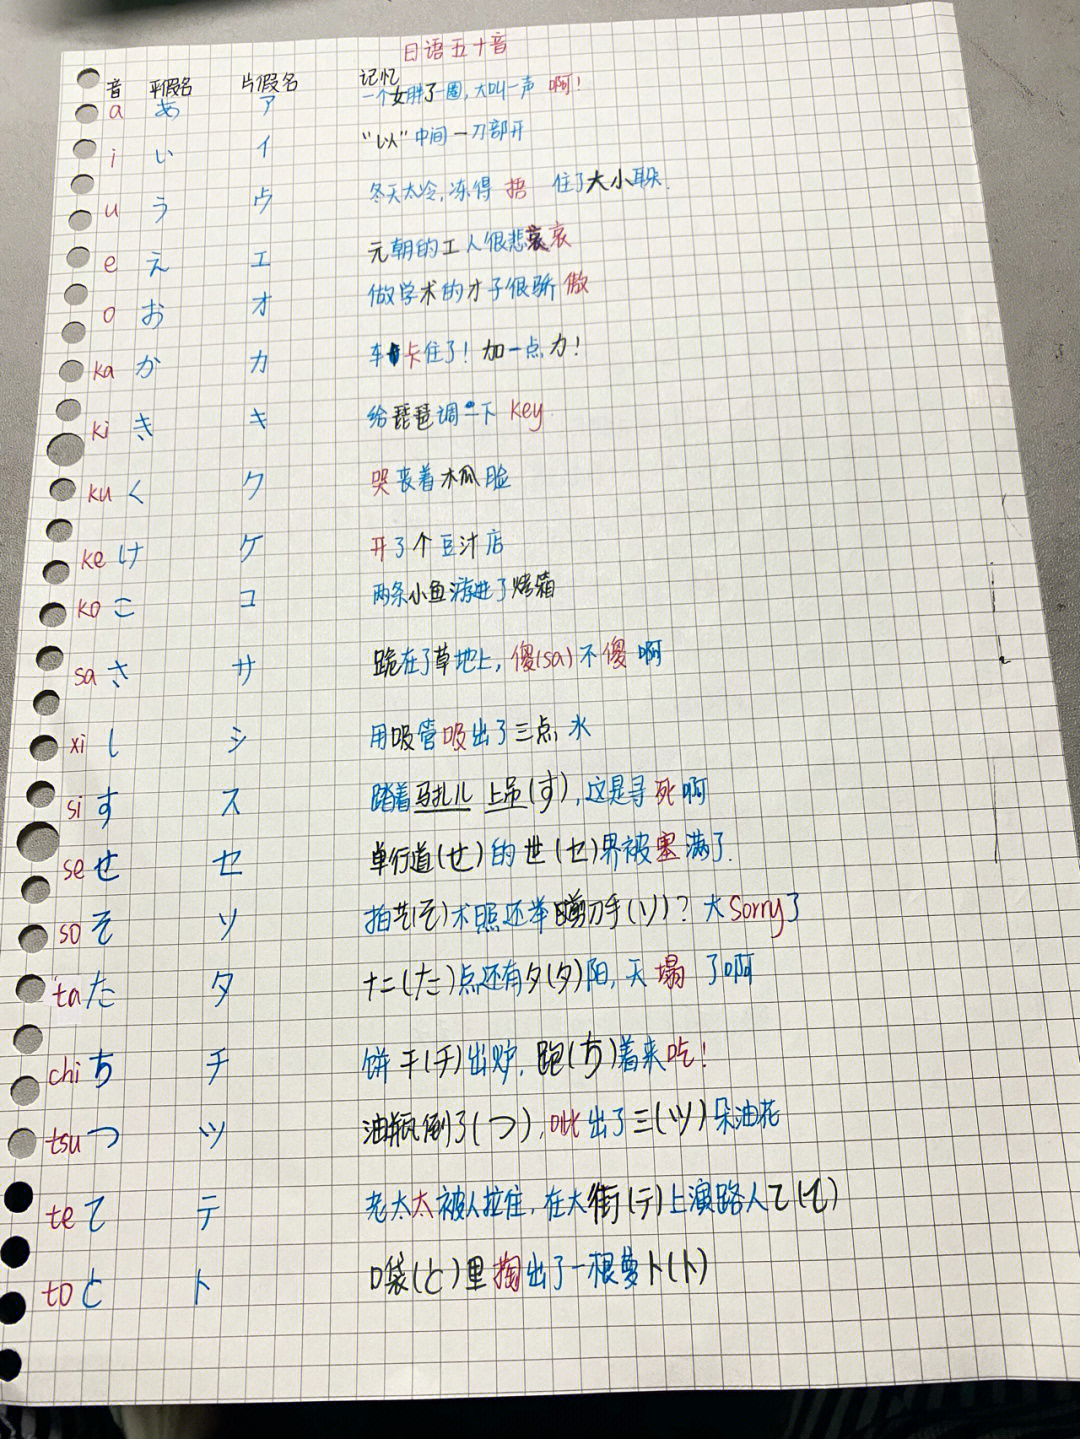 日语五十音
音 平假名 片假名 记忆
a あ ア 一个女胖了一圈,大叫一声 啊!
i い イ “以”中间一刀部开
u う ウ 冬天太冷,冻得 捂 住了大小耳朵.
e え エ 元朝的工人很悲哀哀
o お オ 做学术的才子很骄傲
ka か カ 车卡住了!加一点力!
ki き キ 给琵琶调一下 key
ku く ク 哭丧着木瓜脸
ke け ケ 开了个豆汁店
ko こ コ 两条小鱼游进了烤箱
sa さ サ 跪在了草地上,傻(sa)不傻啊
xi し シ 用吸管吸出了三点水
si す ス 踏着马扎儿 上吊(す),这是寻死啊
se せ セ 单行道(せ)的世(セ)界被塞满了.
so そ ソ 拍艺(そ)术照还举剪刀手(ソ)?大Sorry了
ta た タ 十二(た)点还有夕(タ)阳,天塌了啊
chi ち チ 饼干(チ)出炉,跑(ち)着来吃!
tsu つ ツ 油瓶倒了(つ),呲出了三(ツ)朵油花
te て テ 老太太被人拉住,在大街(テ)上演路人乙(て)
to と ト 口袋(と)里掏出了一根萝卜(ト)